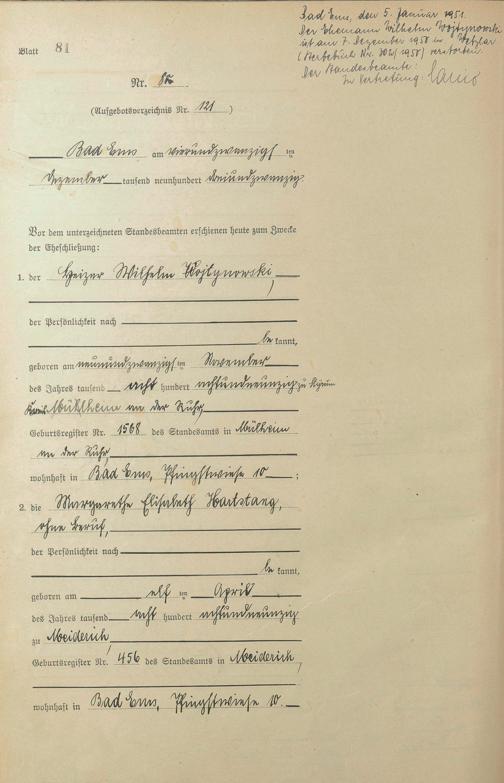 Bad Ems, den 5. Januar 1951.
Der Ehemann Wilhelm Wojtynowski
ist am 7. Dezember 1950 in Wetzlar
(Sterbebuch Nr. 702/1950) verstorben.
Der Standesbeamte:
In Vertretung:
Blatt 81
Nr. 82
(Aufgebotsverzeichnis Nr. 121 )
Bad Ems am vierundzwanzigs ten
Dezember tausend neunhundert dreiundzwanzig.
Vor dem unterzeichneten Standesbeamten erschienen heute zum Zwecke
der Eheschließung:
1. der Heizer Wilhelm Wojtynowski,
der Persönlichkeit nach
be kannt,
geboren am neunundzwanzigs ten November
des Jahres tausend acht hundert achtundneunzig zu Styrum
Kreis Mühlheim an der Ruhr,
Geburtsregister Nr. 1568 des Standesamts in Mülheim
an der Ruhr,
wohnhaft in Bad Ems, Pfingstwiese 10 ;
2. die Margarethe Elisabeth Hartstang,
ohne Beruf,
der Persönlichkeit nach
be kannt,
geboren am elf ten April
des Jahres tausend acht hundert achtundneunzig
zu Meiderich,
Geburtsregister Nr. 456 des Standesamts in Meiderich,
wohnhaft in Bad Ems, Pfingstwiese 10.